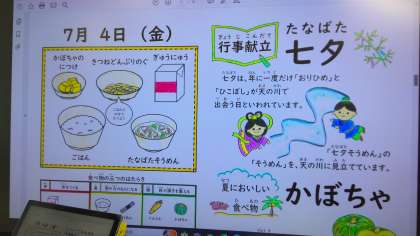 7月 4日 (金)
かぼちゃの
につけ
きつねどんぶりのぐ
ぎゅうにゅう
ごはん
たなばたそうめん
食べ物の三つのはたらき
ぎょうじこんだて
行事献立
たなばた
七夕
七夕は、年に一度だけ「おりひめ」と
「ひこぼし」が天の川で
出会う日といわれています。
「七夕そうめん」の
「そうめん」を、天の川に見立てています。
夏においしい
食べ物
かぼちゃ